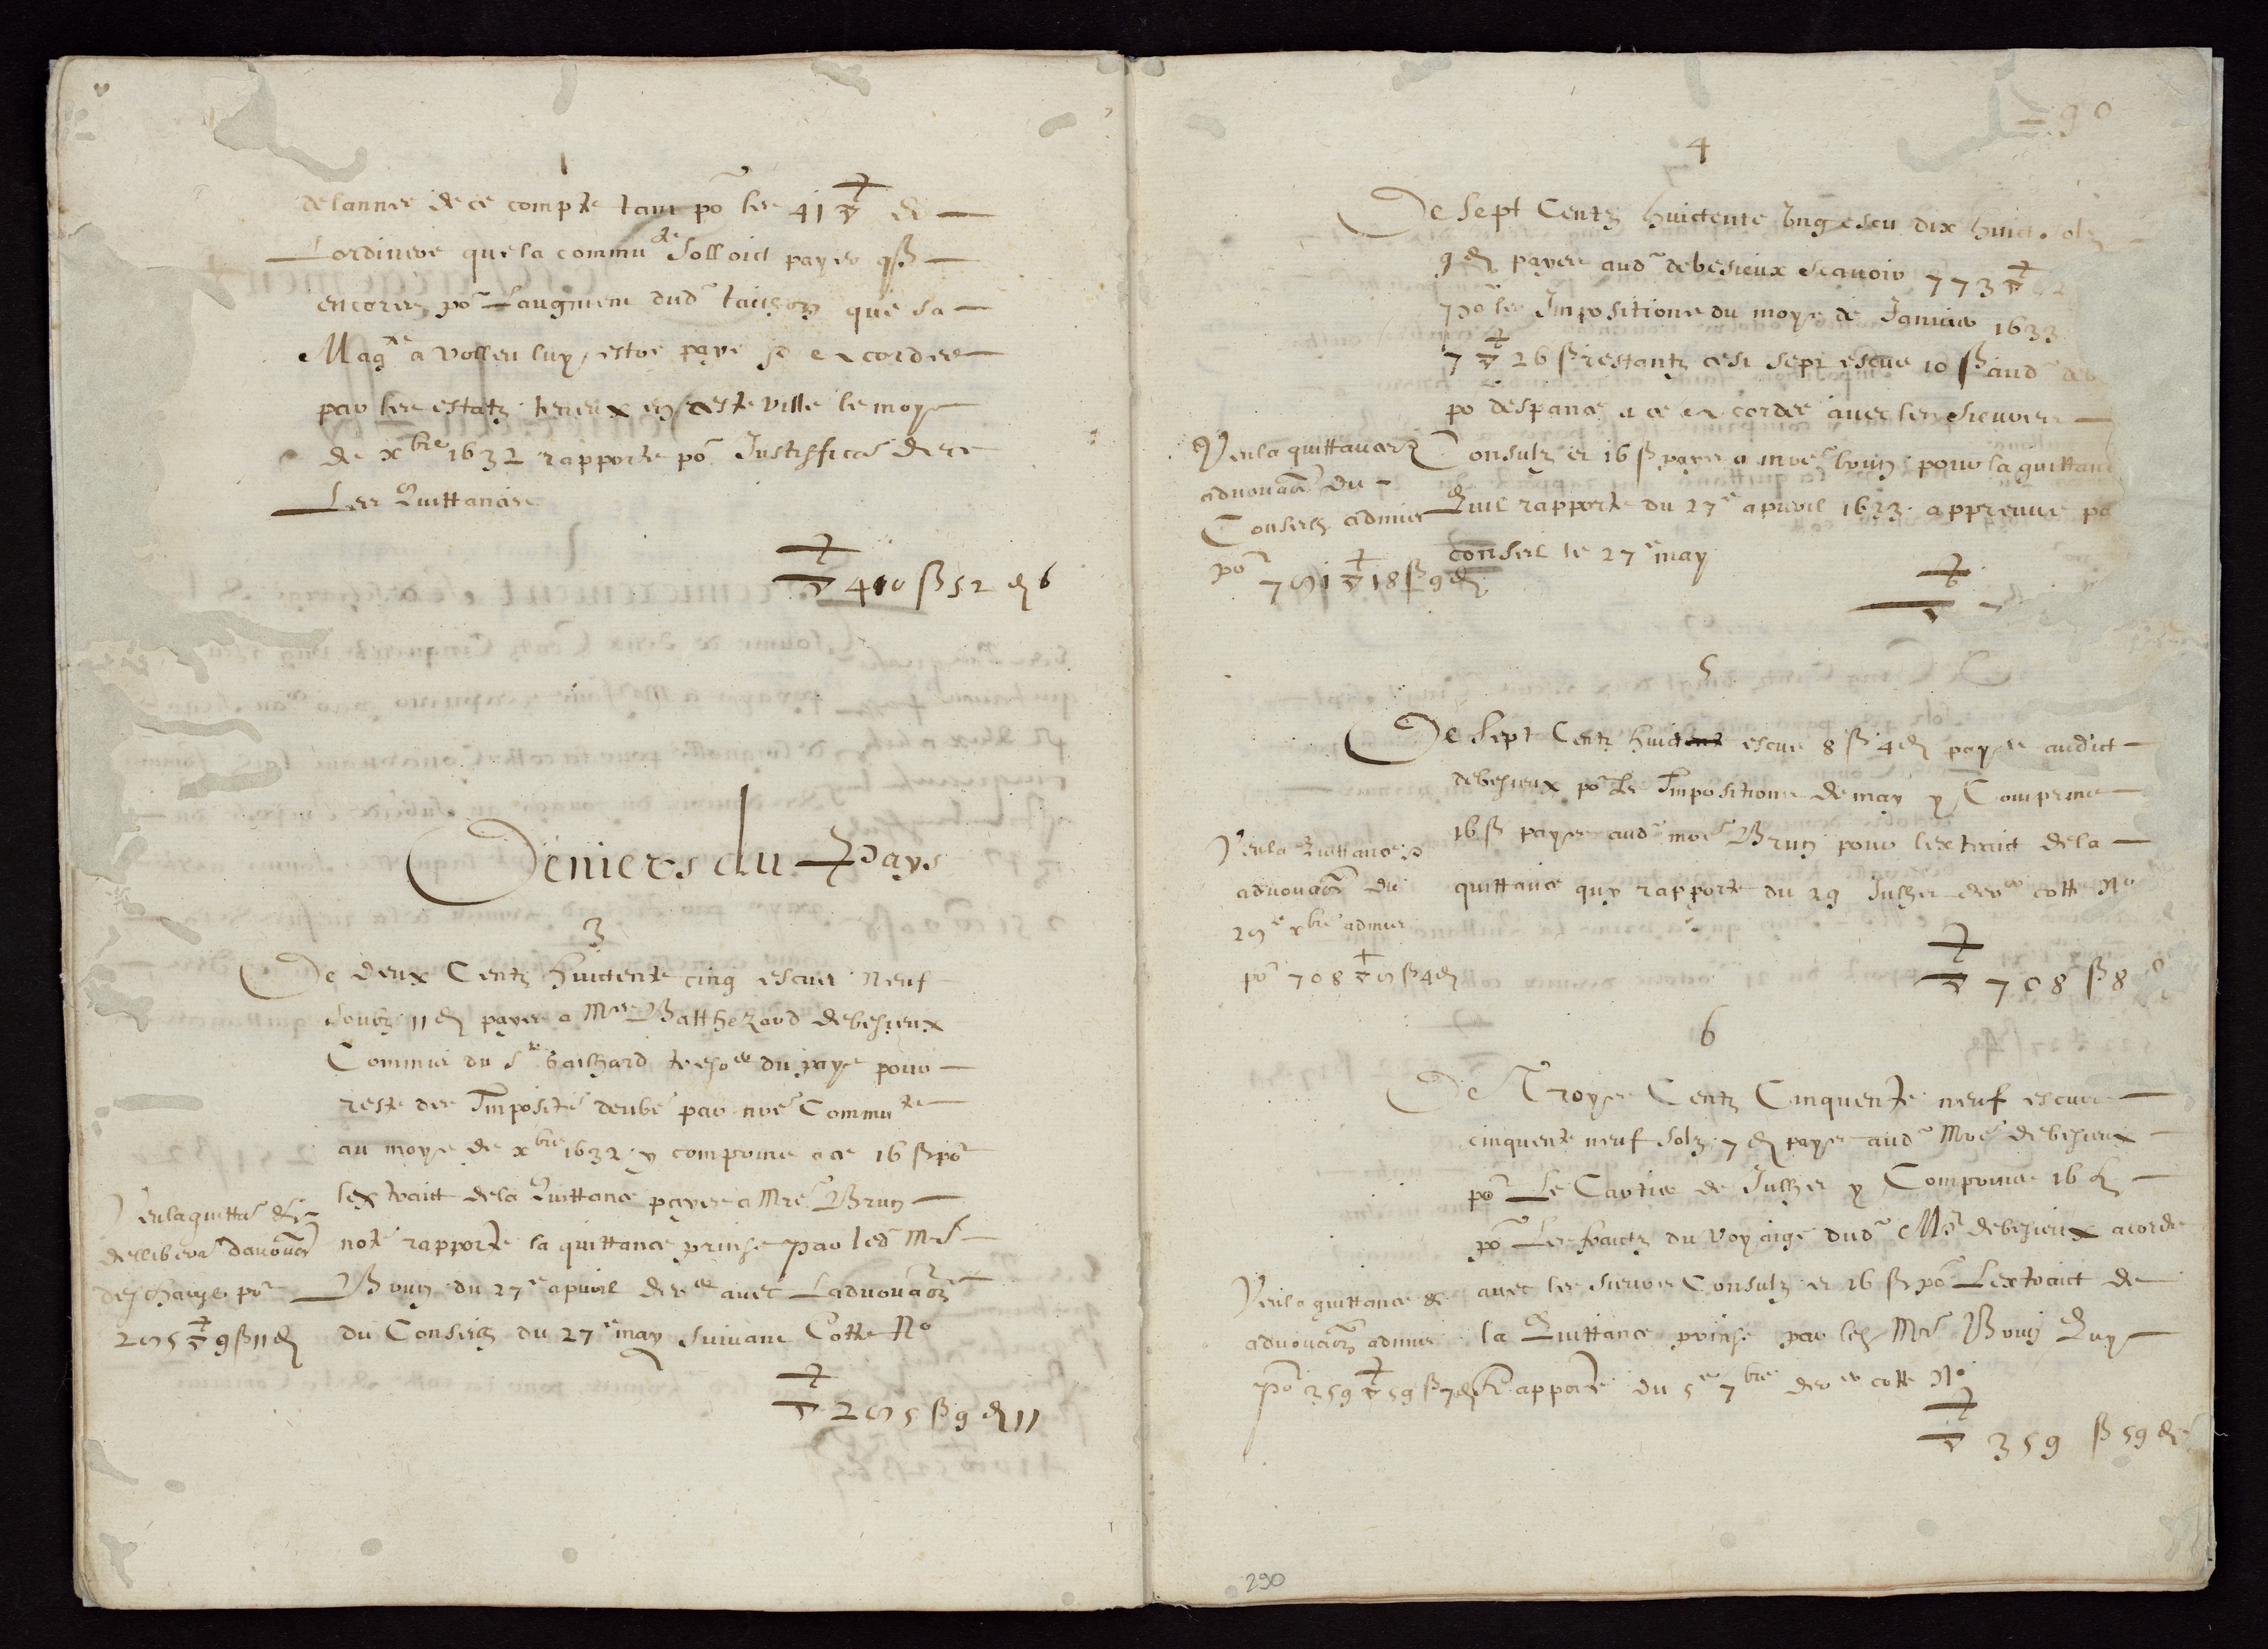 de lannee de ce compte tant po les 41 ▽ de
Lordinere que la commu.te solloict payer q ß
encores po.r Laugment dud taillon que sa
Mag.te a volleu luy estre paye et acordee
par les estatz teneux en ceste ville le moys
de x.bre 1632 rapporte po.r Justifficaō de ce
Les Quittances
▽ 410 ß 52 d 6
Deniers du Pays
3
De deux Centz huictente cinq escus neuf
soubz 11 d payes a M.re Balthezard debesieux
Commis du s.r gailhard tresor.er du pays pour
reste des Imposit.s deubs par nre Commu.te
au moys de x.bre 1632 y comprins a ce 16 ß po.r
lextraict de la Quittance payes a M.re Brun
not.e rapporte la quittance prinse par led M.e
Brun du 27.e apvril der.er avec Ladvouaōn
du Conseilh du 27.e may suivant Cotte N.o
▽ 285 ß 9 d 11
Veu la quitta.e et
delliberaō davouaōn
deschargé po.r
285 ▽ 9 ß 11 d
290
4
De Sept Centz huictente Ung escu dix huict solz
9 d payes aud debesieux scavoir 773 ▽
po les Impositions du moys de Janvier 1633
7 ▽ 26 ß restantz cest sept escus 10 ß aud deb
po despance a ce acordee avec les sieurs
Consulz et 16 ß payes a m.re brun pour la quittan
Quil rapporte du 27.e apvril 1633 appreuve pa
conseil le 27.e may
▽ 7
Veu la quittance
advouaōn du
Conseilh admis
po.r
781 ▽ 18 ß 9 d
5
De Sept Centz huict escus 8 ß 4 d payes audict
debesieux po.r les Impositions de may y Comprins
16 ß payes aud m.re Brun pour lextraict de la
quittance quy rapporte du 29 Julhet der.er cotte N.o
▽ 708 ß 8
Veu la Quittance
advouaōn du
28.e x.bre admis
po.r 708 ▽ 8 ß 4 d
6
De Troys Centz Cinquente neuf escus
cinquente neuf solz 7 d payes aud M.re debesieux
po.r Le Cartier de Julhet y Comprins 16 ß
po.r Les fraictz du voyaige dud M.r debesieux acordé
avec les sieurs Consulz et 16 ß po.r Lextraict de
la Quittance prinse par led M.e Brun Quy
Rapporte du 5.e 7.bre der.er cotte N.o
▽ 359 ß 59 d
Veu la quittance et
advouaōn admis
Po.r 359 ▽ 59 ß 7 d
290